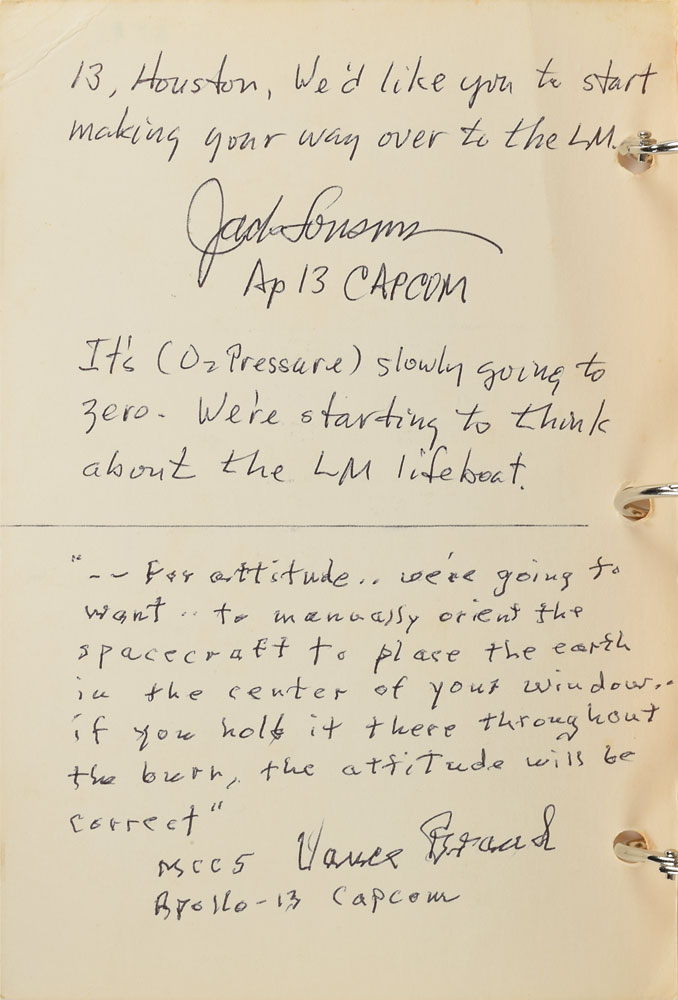 13, Houston, We'd like you to start
making your way over to the LM.
Jack Lousma
Ap 13 CAPCOM
It's (O₂ Pressure) slowly going to
zero. We're starting to think
about the LM lifeboat.
"-- For attitude.. we're going to
want .. to manually orient the
spacecraft to place the earth
in the center of your window..
if you hold it there throughout
the burn, the attitude will be
correct"
Vance Brand
Apollo-13 Capcom